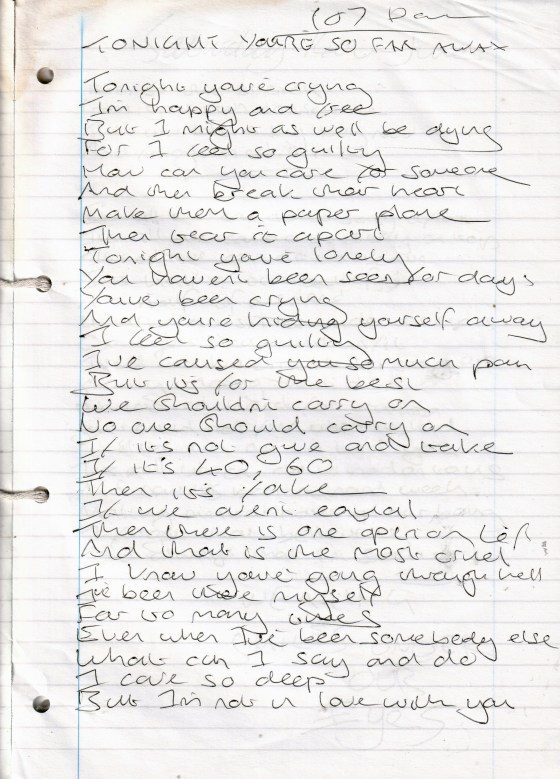 (67) Dan
TONIGHT YOU'RE SO FAR AWAY
Tonight you're crying
I'm happy and free
But I might as well be dying
For I feel so guilty
How can you care for someone
And then break their heart
Make them a paper plane
Then tear it apart
Tonight you're lonely
You haven't been seen for days
You've been crying
And you're hiding yourself away
I feel so guilty
I've caused you so much pain
But it's for the best
We shouldn't carry on
No one should carry on
If it's not give and take
If it's 40, 60
Then it's fake
If we aren't equal
Then there is one option left
And that is the most cruel
I know you're going through hell
I've been there myself
Far too many times
Even when I've been somebody else
What can I say and do
I care so deep
But I'm not in love with you